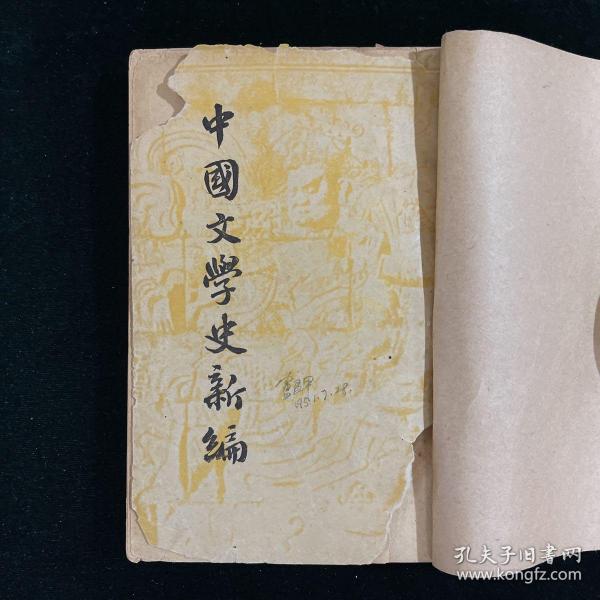 中國文學史新編
1951.7.28.
孔夫子旧书网
www.kongfz.com